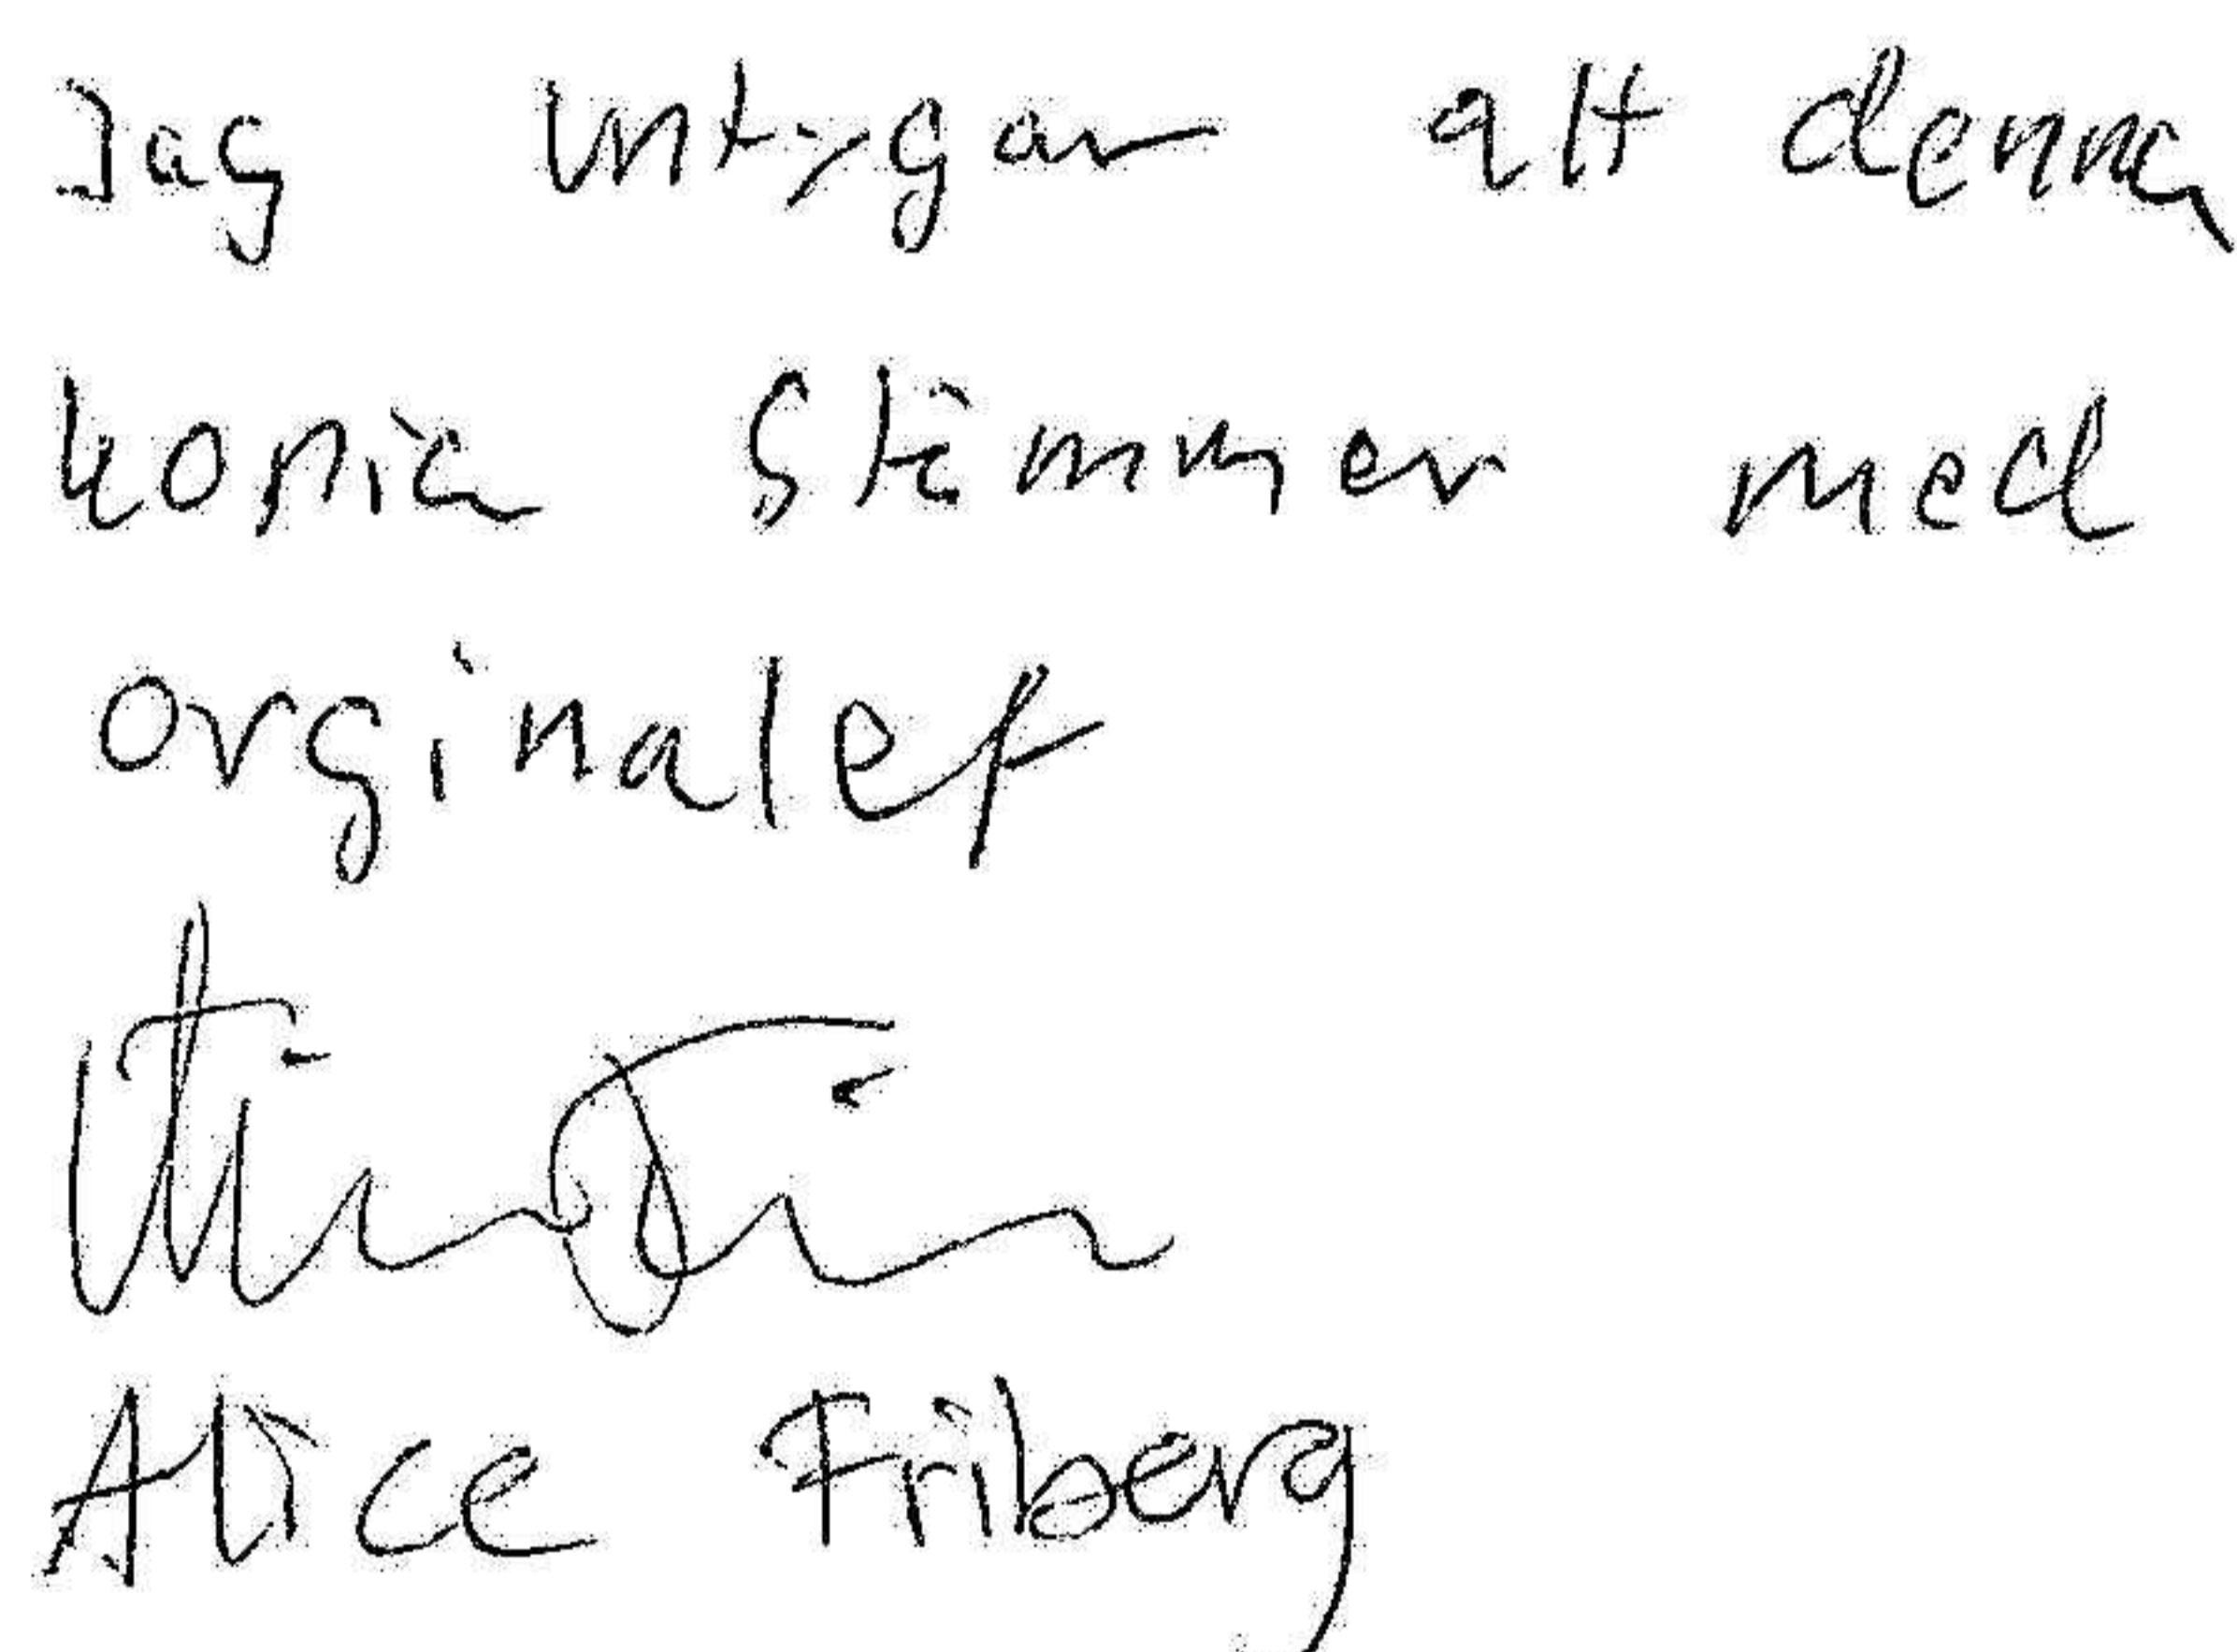 Jag intygar att denna
kopia stämmer med
orginalet
Alice Friberg